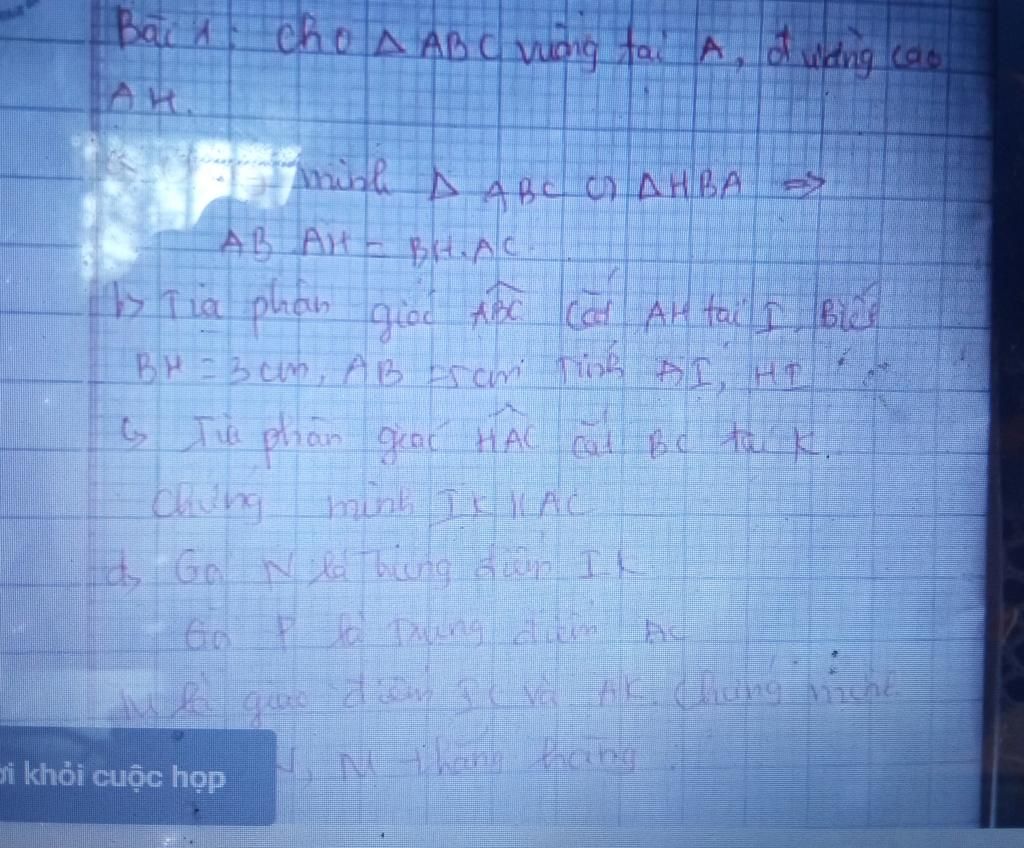 Bài 1: Cho Δ ABC vuông tại A, đường cao
AH.
minh Δ ABC ∽ ΔHBA ⇒
AB AH = BH.AC.
b> Tia phân giác ABC cắt AH tại I. Biết
BH = 3cm, AB = 5cm Tính AI, HI
c> Tia phân giác HAC cắt BC tại K.
Chứng minh IK // AC
d> Gọi N là trung điểm IK
Gọi P là Trung điểm AC
M là giao điểm IC và AK. Chứng minh
N, M thẳng hàng.
ời khỏi cuộc họp